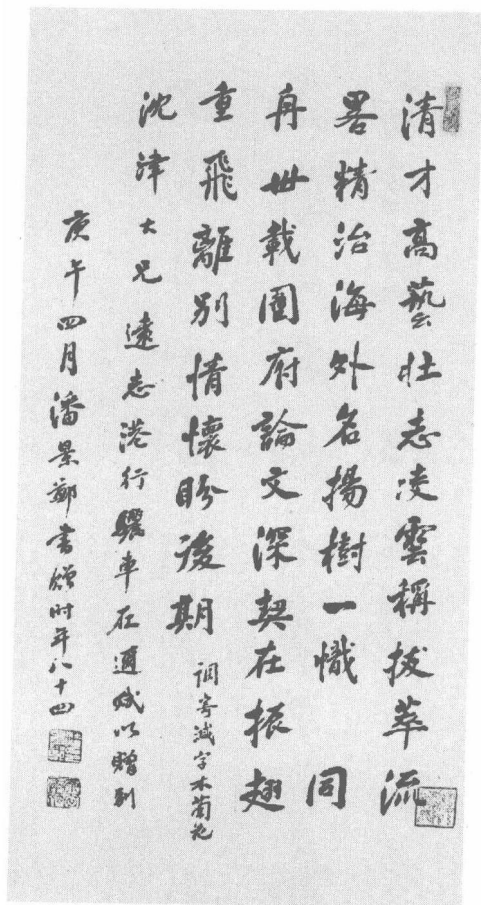 清才高藝壯志凌雲稱拔萃流
畧精治海外名揚樹一幟 同
舟卅載圖府論文深契在振翅
重飛離別情懷盼後期 調寄減字木蘭花
沈津大兄遠志港行驪車在邇賦以贈別
庚午四月潘景鄭書 时年八十四